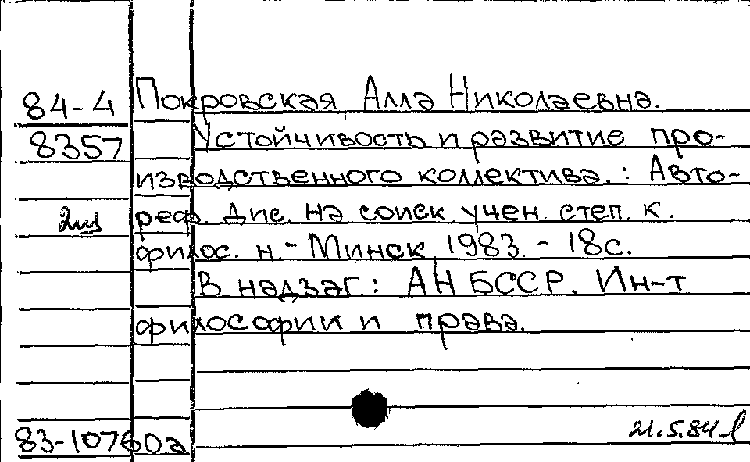 84-4 Покровская Алла Николаевна.
8357 Устойчивость и развитие про-
изводственного коллектива.: Авто-
реф. дис. на соиск учен. степ. к.
филос. н. - Минск, 1983. - 18с.
В надзаг: АН БССР. Ин-т
философии и права.
83-10760а 21.5.84